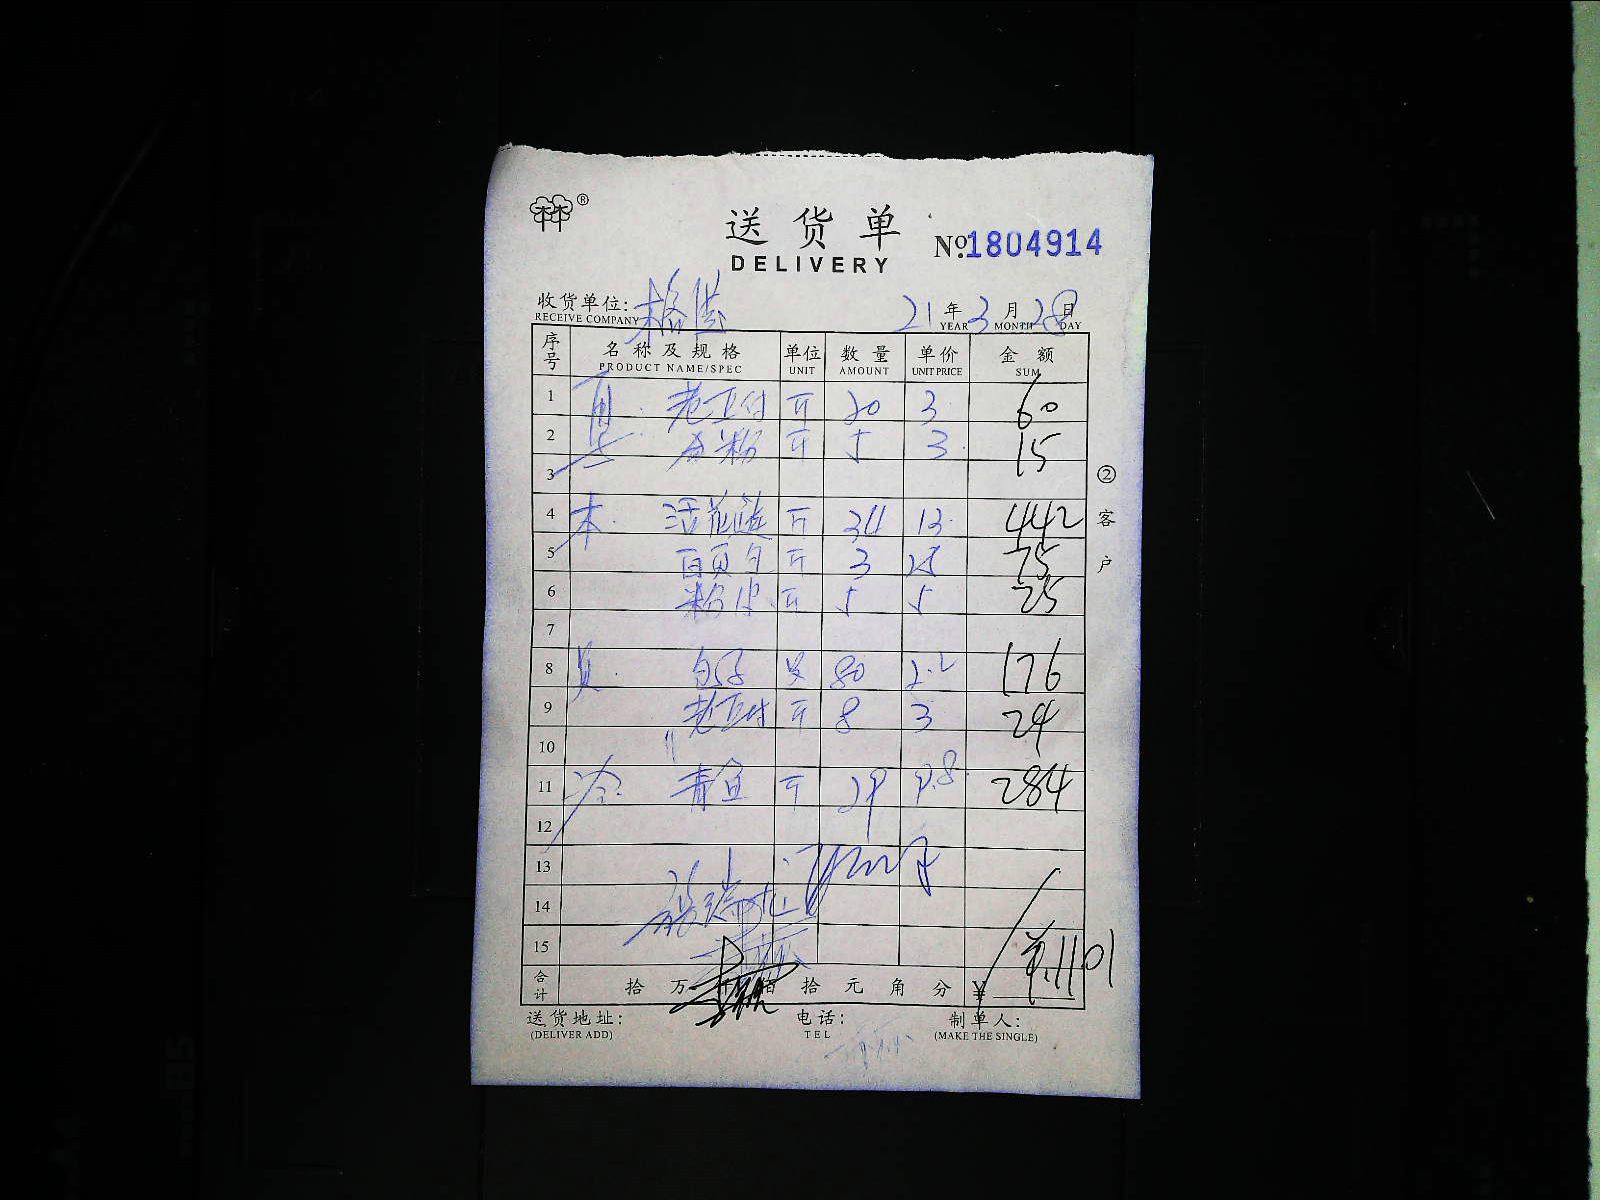 ®
送货单
DELIVERY
No.1804914
收货单位:
RECEIVE COMPANY
21年3月28日
YEAR MONTH DAY
序号 名称及规格 单位 数量 单价 金额
PRODUCT NAME/SPEC UNIT AMOUNT UNIT PRICE SUM
1 斤 20 3 60
2 粉 斤 5 3 15
3
4 本 活花鲢 斤 34 13 442
5 百页 斤 3 25 75
6 粉皮 斤 5 5 25
7
8 包子 只 80 2.2 176
9 斤 8 3 24
10
11 冷 青鱼 斤 29 9.8 284
12
13
14
15 单.1101
合计 拾 万 仟 佰 拾 元 角 分 ¥
送货地址:
(DELIVER ADD)
电话:
TEL
制单人:
(MAKE THE SINGLE)
②客户